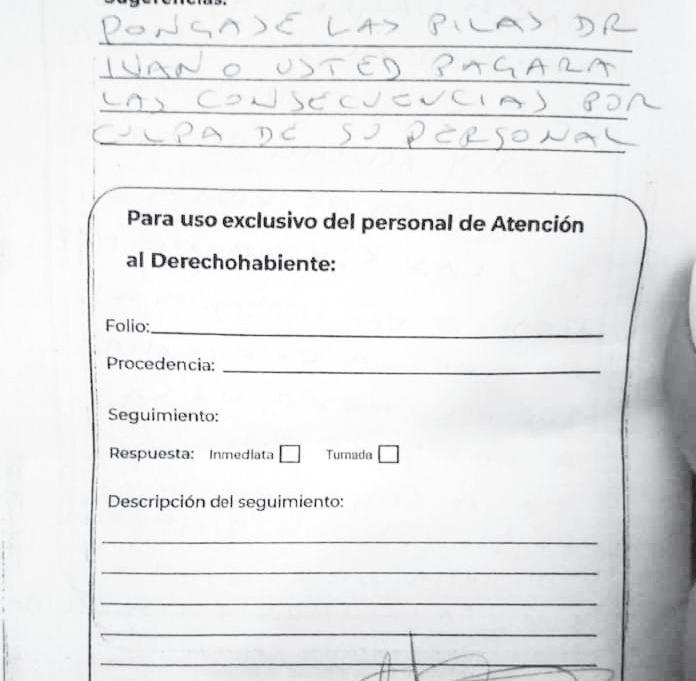 Sugerencias:
PONGASE LAS PILAS DR
IVAN O USTED PAGARA
LAS CONSECUENCIAS POR
CULPA DE SU PERSONAL
Para uso exclusivo del personal de Atención
al Derechohabiente:
Folio:
Procedencia:
Seguimiento:
Respuesta: Inmediata Turnada
Descripción del seguimiento: